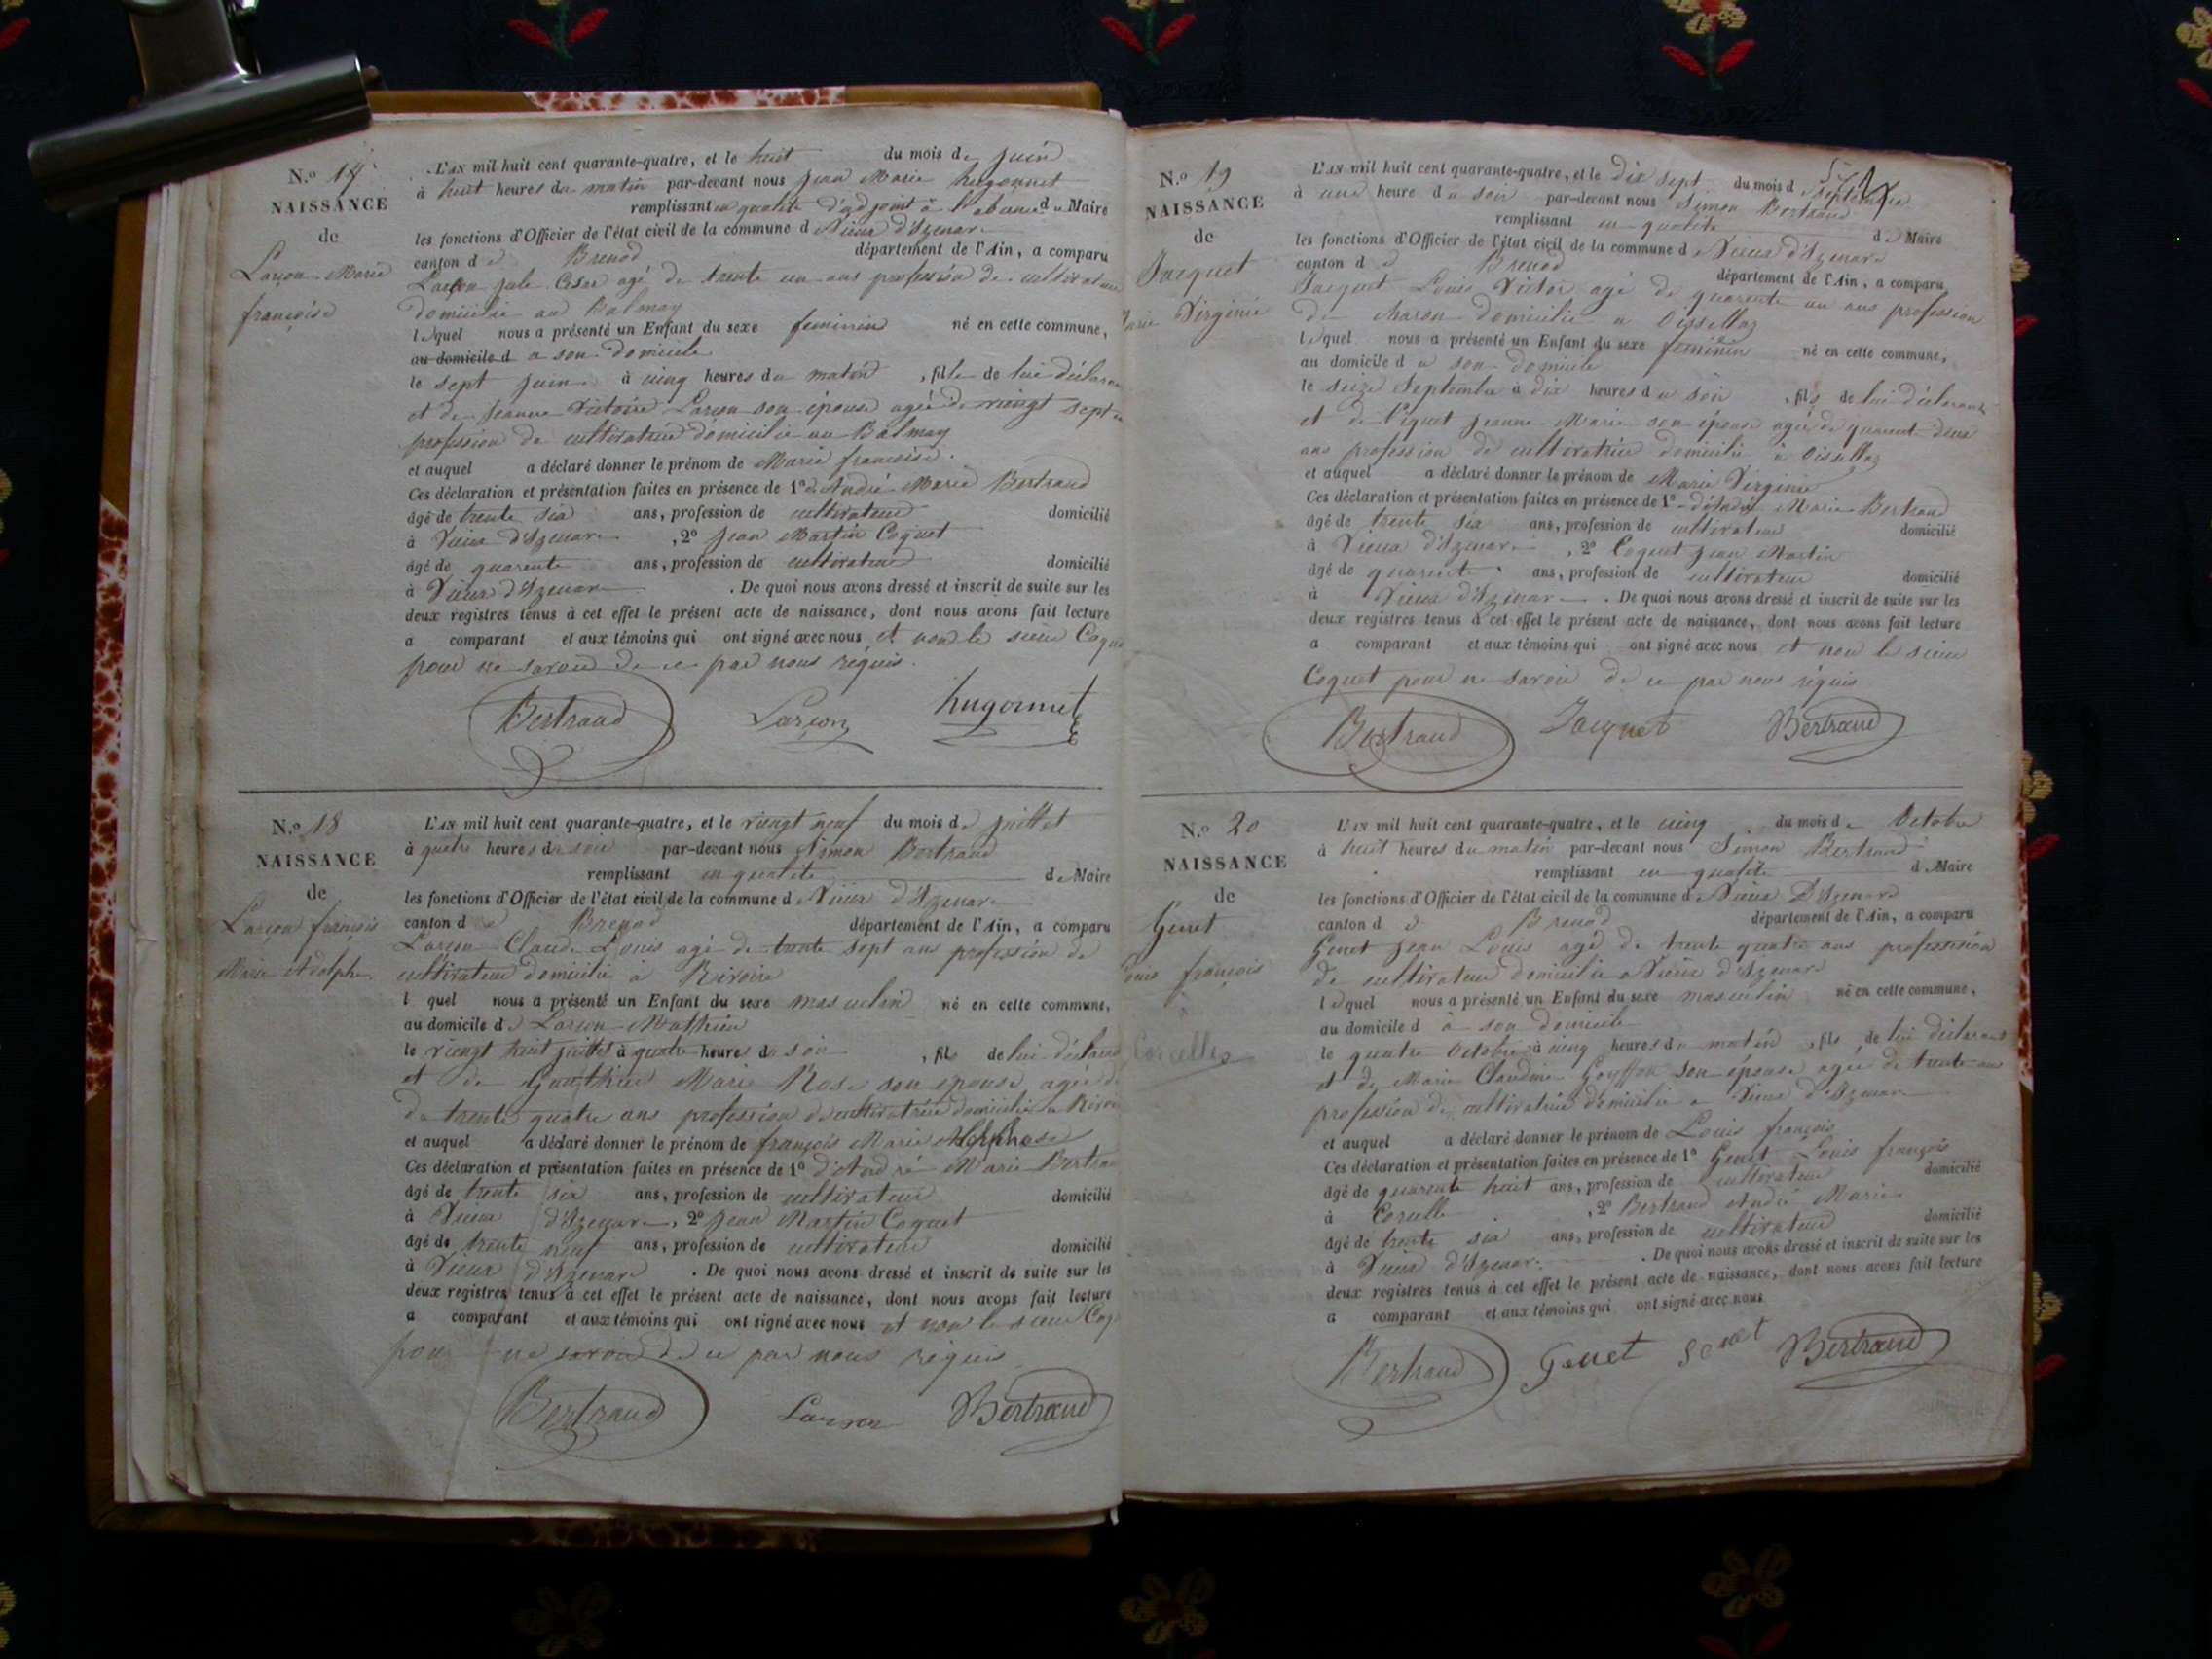 N.º 17
NAISSANCE
de
Larçon Marie
françoise
L'AN mil huit cent quarante-quatre, et le huit du mois de juin
à huit heures du matin par-devant nous Jean Marie hugonnet
remplissant en qualité d'adjoint à l'absence du Maire
les fonctions d'Officier de l'état civil de la commune de Vieux d'Izenave
canton de Brenod département de l'Ain, a comparu
Larçon jule Cesar agé de trente un ans profession de cultivateur
domicilié au Balmay
lequel nous a présenté un Enfant du sexe feminin né en cette commune,
au domicile d a son domicile
le sept juin à cinq heures du matin , fille de lui déclarant
et de Jeanne Victoire Larçon son épouse agée de vingt sept
profession de cultivatrice domicilié au Balmay
et auquel a déclaré donner le prénom de Marie françoise.
Ces déclaration et présentation faites en présence de 1º d'André Marie Bertrand
âgé de trente six ans, profession de cultivateur domicilié
à Vieux d'Izenave , 2º Jean Martin Coquet
âgé de quarente ans, profession de cultivateur domicilié
à Vieux d'Izenave . De quoi nous avons dressé et inscrit de suite sur les
deux registres tenus à cet effet le présent acte de naissance, dont nous avons fait lecture
a comparant et aux témoins qui ont signé avec nous et non le sieur Coquet
pour ne savoir de ce par nous réquis.
Bertrand Larçon hugonnet
N.º 18
NAISSANCE
de
Larçon françois
Marie Adolphe
L'AN mil huit cent quarante-quatre, et le vingt neuf du mois de juillet
à quatre heures du soir par-devant nous Simon Bertrand
remplissant en qualité de Maire
les fonctions d'Officier de l'état civil de la commune de Vieux d'Izenave
canton de Brenod département de l'Ain, a comparu
Larçon Claude Louis agé de trente sept ans profession de
cultivateur domicilié à Rivoire
l quel nous a présenté un Enfant du sexe masculin né en cette commune,
au domicile de Larçon Mathieu
le vingt huit juillet à quatre heures du soir , fils de lui déclarant
et de Gauthier Marie Rose son épouse agée de
de trente quatre ans profession de cultivatrice domicilié a Rivoire
et auquel a déclaré donner le prénom de françois Marie
Ces déclaration et présentation faites en présence de 1º d'André Marie Bertrand
âgé de trente six ans, profession de cultivateur domicilié
à Vieux d'Izenave , 2º Jean Martin Coquet
âgé de trente neuf ans, profession de cultivateur domicilié
à Vieux d'Izenave . De quoi nous avons dressé et inscrit de suite sur les
deux registres tenus à cet effet le présent acte de naissance, dont nous avons fait lecture
a comparant et aux témoins qui ont signé avec nous et non le sieur Coq
pour ne savoir de ce par nous réquis
Bertrand Larçon Bertrand
N.º 19
NAISSANCE
de
Jacquet
Marie Virginie
L'AN mil huit cent quarante-quatre, et le dix sept du mois d septembre
à une heure du soir par-devant nous Simon Bertrand
remplissant en qualité de Maire
les fonctions d'Officier de l'état civil de la commune de Vieux d'Izenave
canton de Brenod département de l'Ain, a comparu
Jacquet Louis Victor agé de quarente un ans profession
de Maçon domicilié a Oissellaz
lequel nous a présenté un Enfant du sexe feminin né en cette commune,
au domicile d a son domicile
le seize Septembre à dix heures du soir , fils de lui déclarant
et de Piquet Jeanne Marie son épouse agée de quarent deux
ans profession de cultivatrice domicilié à Oissellaz
et auquel a déclaré donner le prénom de Marie Virginie
Ces déclaration et présentation faites en présence de 1º d'André Marie Bertrand
âgé de trente six ans, profession de cultivateur domicilié
à Vieux d'Izenave , 2º Coquet Jean Martin
âgé de quarente ans, profession de cultivateur domicilié
à Vieux d'Izenave . De quoi nous avons dressé et inscrit de suite sur les
deux registres tenus à cet effet le présent acte de naissance, dont nous avons fait lecture
a comparant et aux témoins qui ont signé avec nous et non le sieur
Coquet pour ne savoir de ce par nous réquis
Bertrand Jacquet Bertrand
N.º 20
NAISSANCE
de
Genet
Louis françois
Corcelles
L'AN mil huit cent quarante-quatre, et le cinq du mois de Octobre
à huit heures du matin par-devant nous Simon Bertrand
remplissant en qualité de Maire
les fonctions d'Officier de l'état civil de la commune de Vieux D'Izenave
canton de Brenod département de l'Ain, a comparu
Genet Jean Louis agé de trente quatre ans profession
de cultivateur domicilié a Vieux d'Izenave
lequel nous a présenté un Enfant du sexe masculin né en cette commune,
au domicile d à son domicile
le quatre Octobre à cinq heures du matin , fils de lui déclarant
et de Marie Claudine Goyffon son épouse agée de trente ans
profession de cultivatrice domicilié a Vieux d'Izenave
et auquel a déclaré donner le prénom de Louis françois
Ces déclaration et présentation faites en présence de 1º Genet Louis françois
âgé de quarente huit ans, profession de cultivateur domicilié
à Corcelle , 2º Bertrand André Marie
âgé de trente six ans, profession de cultivateur domicilié
à Vieux d'Izenave . De quoi nous avons dressé et inscrit de suite sur les
deux registres tenus à cet effet le présent acte de naissance, dont nous avons fait lecture
a comparant et aux témoins qui ont signé avec nous
Bertrand Genet Genet Bertrand